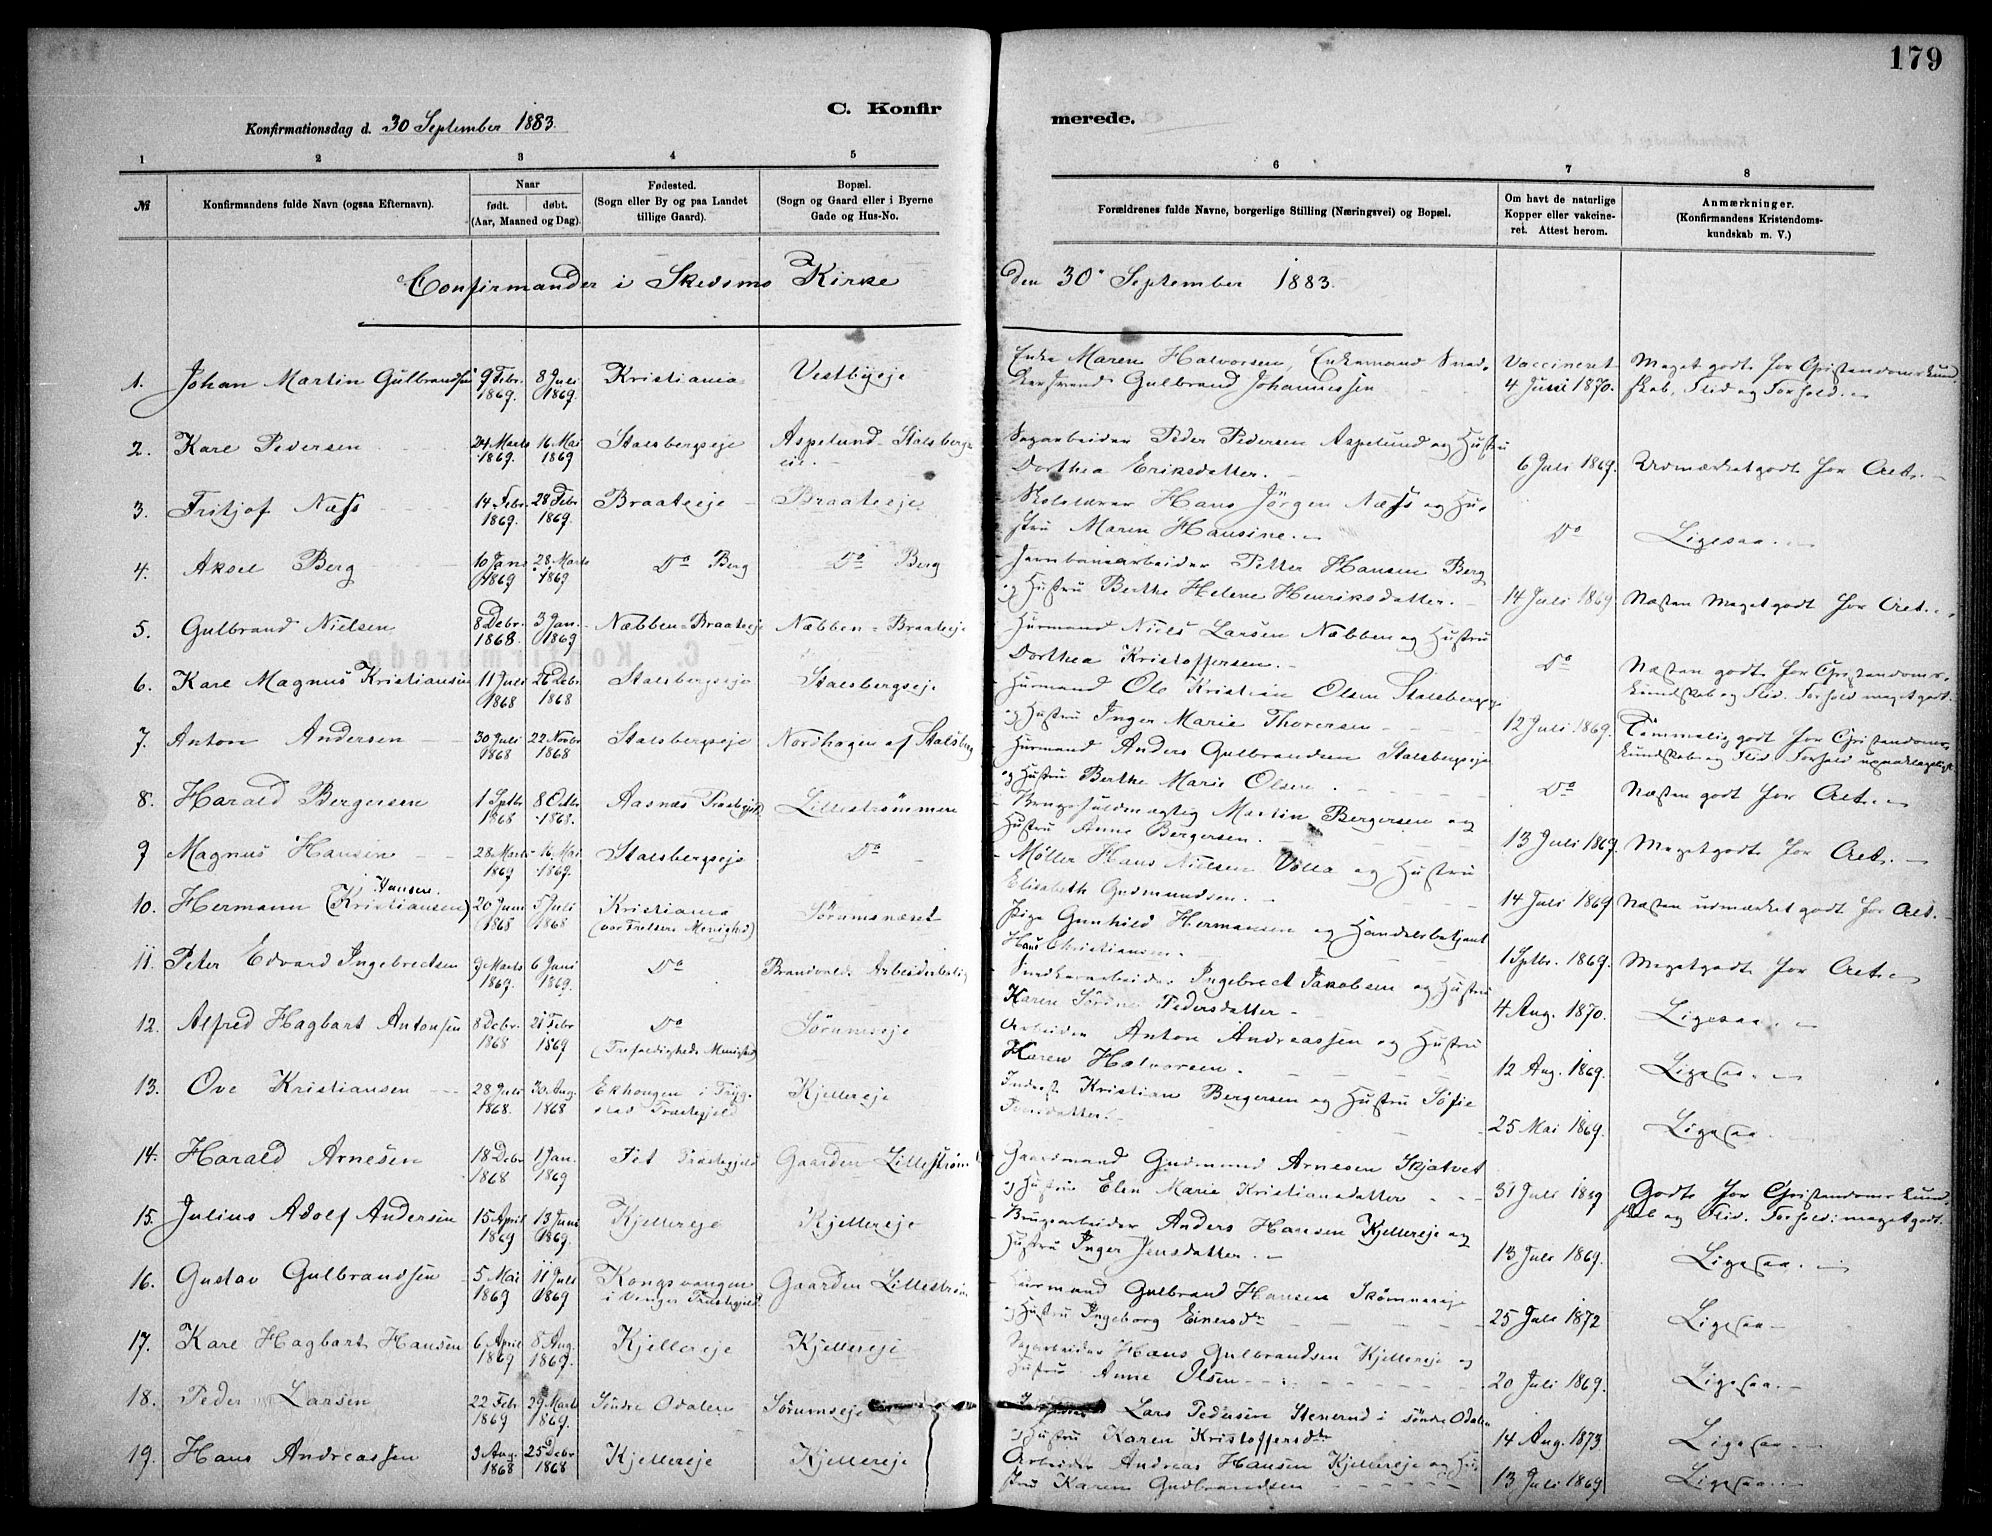 179
C. Konfir merede.
Konfirmationsdag d. 30 September 1883.
1 2 3 4 5 6 7 8
№
Konfirmandens fulde Navn (ogsaa Efternavn).
Naar
født. døbt.
(Aar, Maaned og Dag).
Fødested.
(Sogn eller By og paa Landet
tillige Gaard).
Bopæl.
(Sogn og Gaard eller i Byerne
Gade og Hus-No.
Forældrenes fulde Navne, borgerlige Stilling (Næringsvei) og Bopæl.
Om havt de naturlige
Kopper eller vakcine-
ret. Attest herom.
Anmærkninger.
(Konfirmandens Kristendoms-
kundskab m. V.)
Confirmander i Skedsmo Kirke den 30 September 1883.
1. Johan Martin Gulbrandsen 9 Febr. 1869. 8 Juli 1869. Kristiania Vestbyeje
Enke Maren Halvorsen, Enkemand Sned-
kersvend Gulbrand Johannessen
Vaccineret 4 Juni 1870.
Meget godt for Christendomskund-
skab, Flid og Forhold.
2. Karl Pedersen 24 Marts 1869. 16 Mai 1869 Stalsbergseje Aspelund Stalsbergs-
eie.
Sagarbeider Peder Pedersen Aspelund og Hustru
Dorthea Eriksdatter.
6 Juli 1869. Udmærket godt for Alt.
3. Fritjof Næss 14 Febr. 1869. 28 Febr 1869. Braateeje Braateeje
Skolelærer Hans Jörgen Næss og Hu-
stru Maren Hansine.
Do Ligesaa.
4. Aksel Berg 10 Jan. 1869 28 Marts 1869 Do Berg Do Berg
Jernbanearbeider Petter Hansen Berg
og Hustru Berthe Helene Henriksdatter.
14 Juli 1869 Næsten Meget godt for Alt.
5. Gulbrand Nielsen 8 Debr. 1868. 3 Jan. 1869 Næbben-Braateeje Næbben-Braateeje
Husmand Niels Larsen Næbben og Hustru
Dorthea Kristoffersen.
Do Næsten godt for Christendoms-
kundskab og Flid. Forhold meget godt.
6. Karl Magnus Kristiansen 11 Juli 1868 26 Debr 1868 Stalsbergseje Stalsbergseje
Husmand Ole Kristian Olsen Stalsbergseje
og Hustru Inger Marie Thoresen
12 Juli 1869. Temmelig godt for Christendoms-
kundskab og Flid. Forhold upaaklageligt.
7. Anton Andersen 30 Juli 1868 22 Novbr 1868 Stalsbergseje Nordhagen af Stalsberg
Husmand Anders Gulbrandsen Stalsbergseje
og Hustru Berthe Marie Olsen.
Do Næsten godt for Alt.
8. Harald Bergersen 1 Sptbr 1868 8 Octbr 1868. Aasnæs Præstegjeld Lillestrømmen
Brugsfuldmægtig Martin Bergersen og
Hustru Anne Bergersen.
13 Juli 1869. Meget godt for Alt.
9 Magnus Hansen 28 Marts 1869 16 Mai 1869. Stalsbergseje Do
Møller Hans Nielsen Volla og Hustru
Elisabeth Gudmundsen.
14 Juli 1869 Næsten udmærket godt for Alt.
10. Hermann (Kristiansen) Hansen. 20 Juni 1868 5 Juli 1868 Kristiania
(vor Frelsers Menighed) Sørumsnæset
Pige Gunhild Hermansen og Handelsbetjent
Hans Christiansen.
1 Sptbr. 1869. Meget godt for Alt.
11. Peter Edvard Ingebretsen 9 Marts 1869. 6 Juni 1869. Do Brandvolds Arbeiderbolig
Snedkerarbeider Ingebret Jakobsen og Hustru
Karen Sørine Pedersdatter.
4 Aug. 1870. Ligesaa.
12. Alfred Hagbart Antonsen 8 Debr. 1868 21 Febr 1869 Do
(Trefoldigheds Menighed) Sørumseje
Arbeider Anton Andreassen og Hustru
Karen Halvorsen.
12 Aug. 1869. Ligesaa.
13. Ove Kristiansen 28 Juli 1868. 30 Aug. 1868 Ekhougen i Tryg-
stad Præstegjeld Kjellereje
Inderst Kristian Bergersen og Hustru Sofie
25 Mai 1869. Ligesaa.
14. Harald Arnesen 18 Debr 1868 1 Jan. 1869 Fet Præstegjeld Gaarden Lillestrøm
Gaardmand Gudmund Arnesen Skjatvet
og Hustru Elen Marie Kristiansdatter
31 Juli 1869 Godt for Christendomskund-
skab og Flid. Forhold: meget godt.
15. Julius Adolf Andersen 15 April 1869 13 Juni 1869. Kjellereje Kjellereje
Brugsarbeider Anders Hansen Kjellereje og
Hustru Inger Jensdatter.
13 Juli 1869. Ligesaa.
16. Gustav Gulbrandsen 5 Mai 1869 11 Juli 1869 Kongsvangen
i Vanger Præstegjeld. Gaarden Lillestrøm
Husmand Gulbrand Hansen
og Hustru Ingeborg Einersdtr
25 Juli 1872 Ligesaa
17. Karl Hagbart Hansen 6 April 1869 8 Aug. 1869. Kjellereje Kjellereje
Sagarbeider Hans Gulbrandsen Kjellereje og
Hustru Anne Olsen
20 Juli 1869. Ligesaa.
18. Peder Larsen 22 Febr 1869 29 Marts 1869. Söndre Odalen Sørumseje
Lars Pedersen Stenerud i söndre Odalen
og Hustru Karen Kristoffersdtr
14 Aug. 1873 Ligesaa.
19. Hans Andreassen 3 Aug. 1868 25 Debr 1868 Kjellereje Kjellereje
Arbeider Andreas Hansen Kjellereje og Hu-
stru Karen Gudbrandsen
13 Juli 1869 Ligesaa.